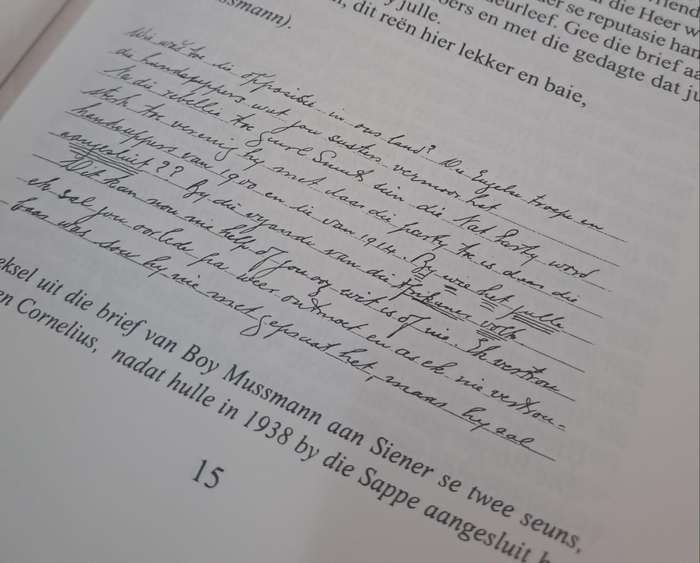 riend
die Heer w
er se reputasie han
eurleef. Gee die brief aa
pers en met die gedagte dat ju
y julle.
, dit reën hier lekker en baie,
ssmann).
Wie was toe die opposisie in ons land? Die Engelse troepe en
de handsuppers wat jou susters vermoor het
Na die rebellie toe genl Smuts sien die Nat Party word
sterk toe verenig hy met daar die party toe is dwar die
handsuppers van 1900 en die van 1914. By wie het julle
aangesluit?? By die vyande van die Afrikaner volk
Dit kan nou nie help of jou oog wit is of nie. Ek vertrou
ek sal jou oorlede pa weer ontmoet en as ek nie vertrou-
baas was sou hy nie met gepraat het, maar hy sal
ksel uit die brief van Boy Mussmann aan Siener se twee seuns,
en Cornelius, nadat hulle in 1938 by die Sappe aangesluit h
15